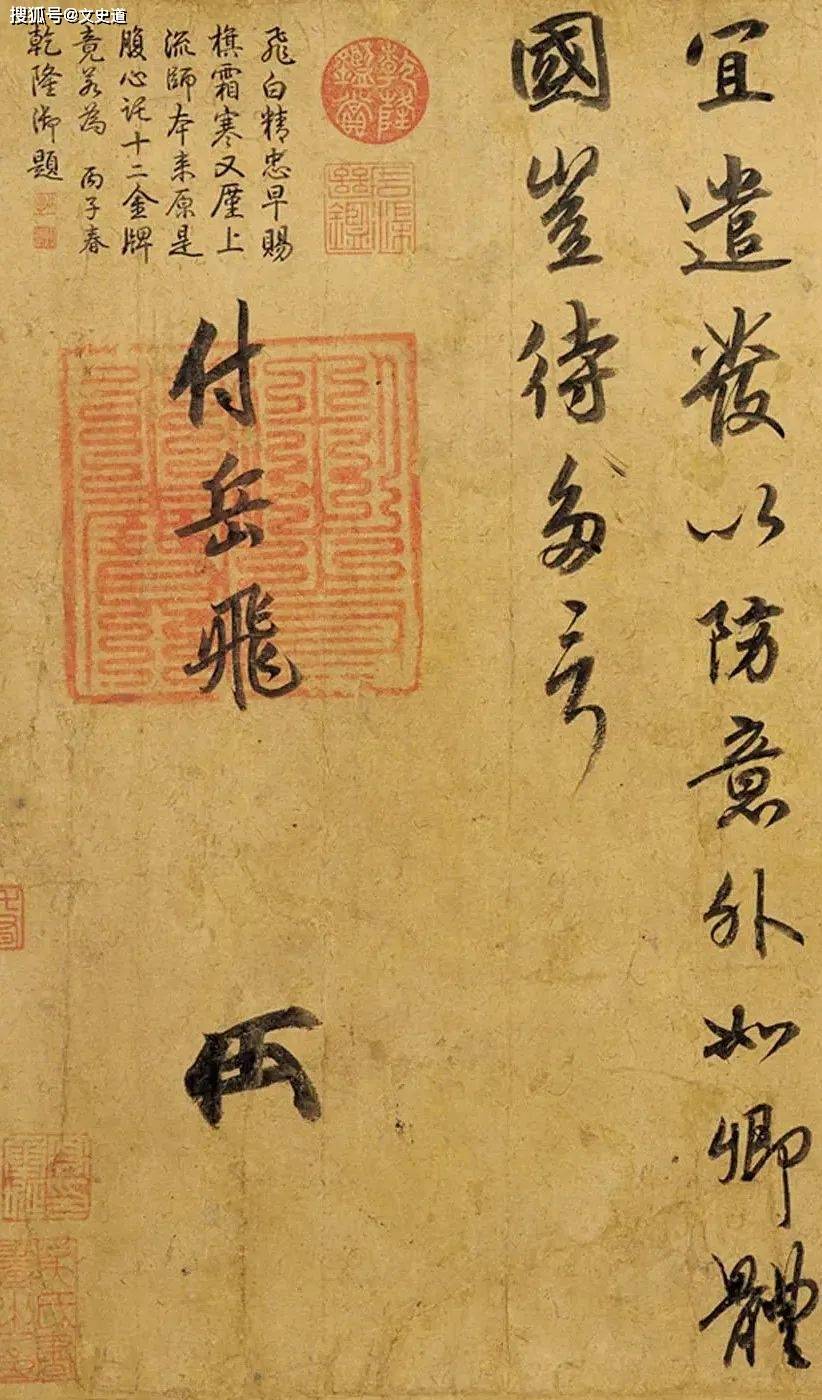 搜狐号@文史道
宜遣發以防意外如卿體
國豈待多言
付岳飛
乾隆鑑賞
飛白精忠早賜
旗霜寒又屢上
流師本來原是
腹心託十二金牌
竟若為 丙子春
乾隆御題